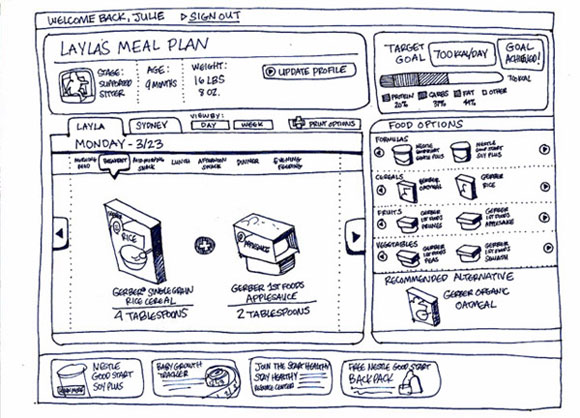 WELCOME BACK, JULIE ▷ SIGN OUT
LAYLA'S MEAL PLAN
STAGE:
SUPPORTED
SITTER
AGE:
9 MONTHS
WEIGHT:
16 LBS
8 OZ.
UPDATE PROFILE
TARGET
GOAL
700 KCAL/DAY
GOAL
ACHIEVED!
KCAL
PROTEIN
20%
CARBS
FAT
44%
OTHER
LAYLA
SYDNEY
VIEW BY:
DAY
WEEK
PRINT OPTIONS
MONDAY - 3/23
MORNING
FEED
BREAKFAST
MID-MORNING
SNACK
LUNCH
AFTERNOON
SNACK
DINNER
EVENING
FEEDING
RICE
APPLESAUCE
GERBER® SINGLE GRAIN
RICE CEREAL
4 TABLESPOONS
GERBER 1ST FOODS
APPLESAUCE
2 TABLESPOONS
FOOD OPTIONS
FORMULAS
NESTLE
GOOD START
PLUS
NESTLE
GOOD START
SOY PLUS
CEREALS
GERBER
OATMEAL
GERBER
RICE
FRUITS
GERBER
1ST FOODS
PRUNES
GERBER
1ST FOODS
APPLESAUCE
VEGETABLES
GERBER
1ST FOODS
PEAS
GERBER
1ST FOODS
SQUASH
RECOMMENDED ALTERNATIVE
GERBER ORGANIC
OATMEAL
NESTLE
GOOD START
SOY PLUS
BABY GROWTH
TRACKER
JOIN THE START HEALTHY
STAY HEALTHY
RESOURCE CENTER
FREE NESTLE GOOD START
BACKPACK